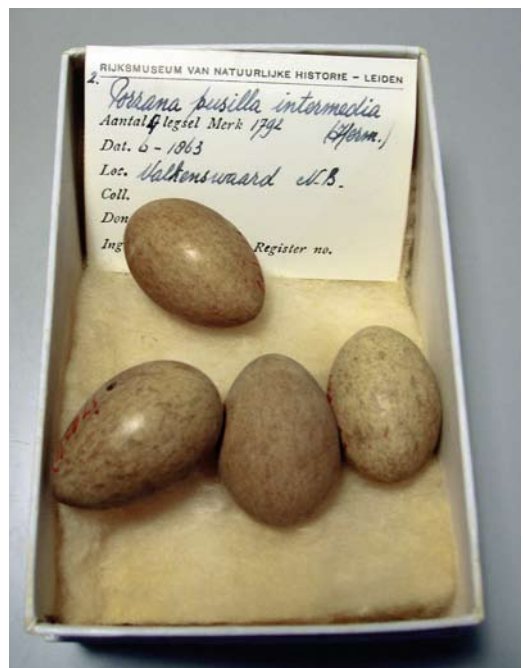 RIJKSMUSEUM VAN NATUURLIJKE HISTORIE – LEIDEN
2. Porzana pusilla intermedia
Aantal 4 legsel Merk 1792 (Herm.)
Dat. 6 - 1863
Loc. Valkenswaard N.B.
Coll.
Don
Ing Register no.